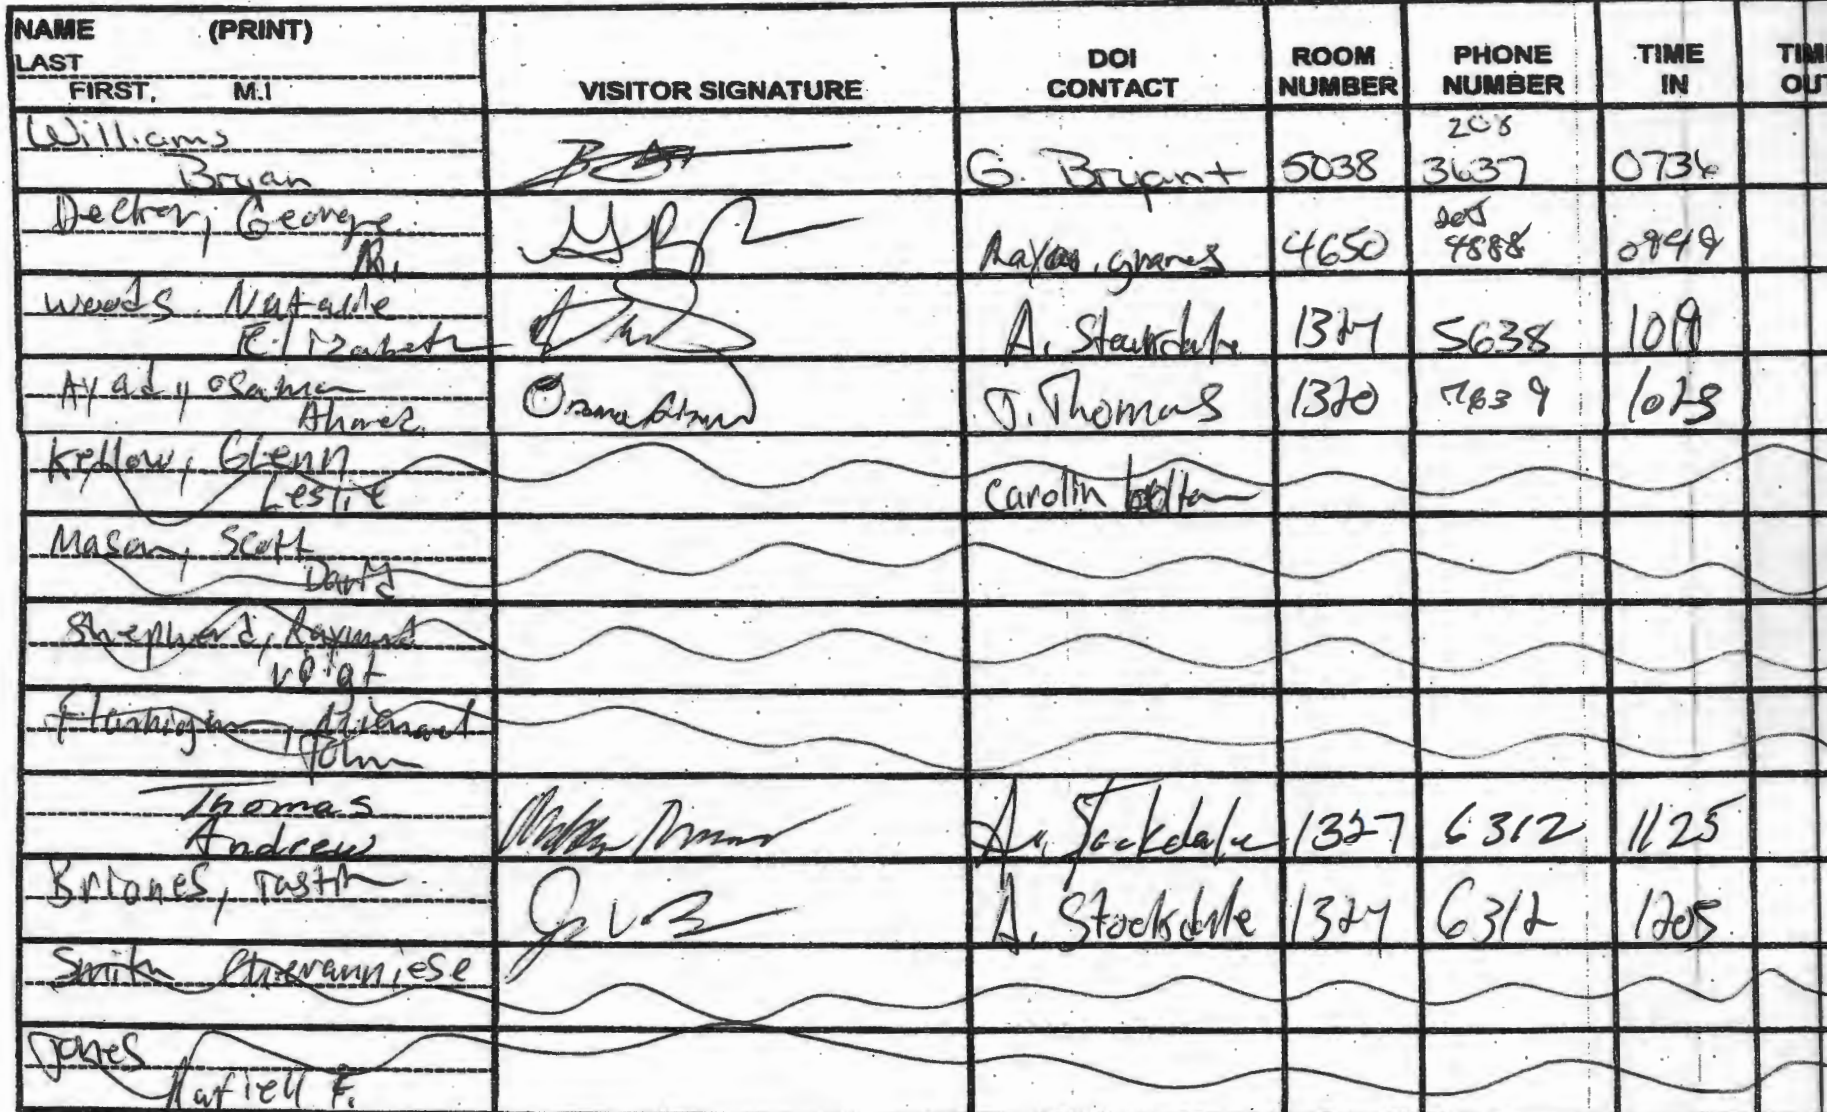 NAME (PRINT)
LAST
FIRST, M.I
VISITOR SIGNATURE
DOI
CONTACT
ROOM
NUMBER
PHONE
NUMBER
TIME
IN
TIME
OUT
Williams
Bryan
G. Bryant 5038 208 3637 0736
George
R.
4650 4888
Woods Natalie
Elizabeth
A. 1327 5638 1019
Ayad, Osama
Ahmed
J. Thomas 1320 7839 1023
Kellow, Glenn
Leslie
Carolin
Mason, Scott
David
Shepherd, Raymond
Flannigan, Michael
John
Thomas
Andrew
A. Stockdale 1327 6312 1125
Briones,
A. Stocksdale 1327 6312 1205
Smith
Jones
F.